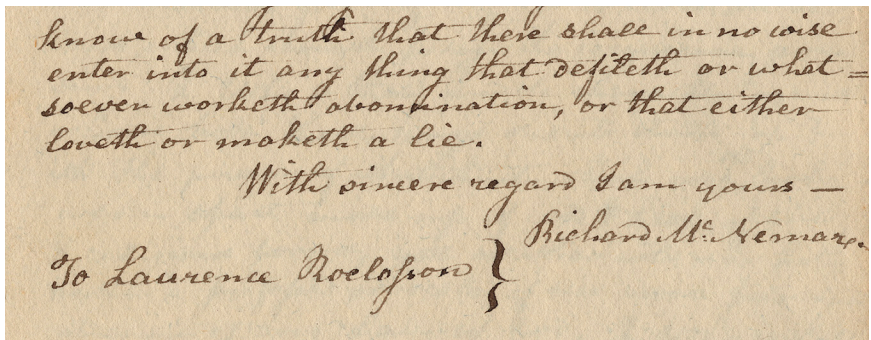 know of a truth that there shall in no wise
enter into it any thing that defileth or what=
soever worketh abomination, or that either
loveth or maketh a lie.
With sincere regard I am yours —
Richard Mc. Nemar.
To Laurence Roelosson }